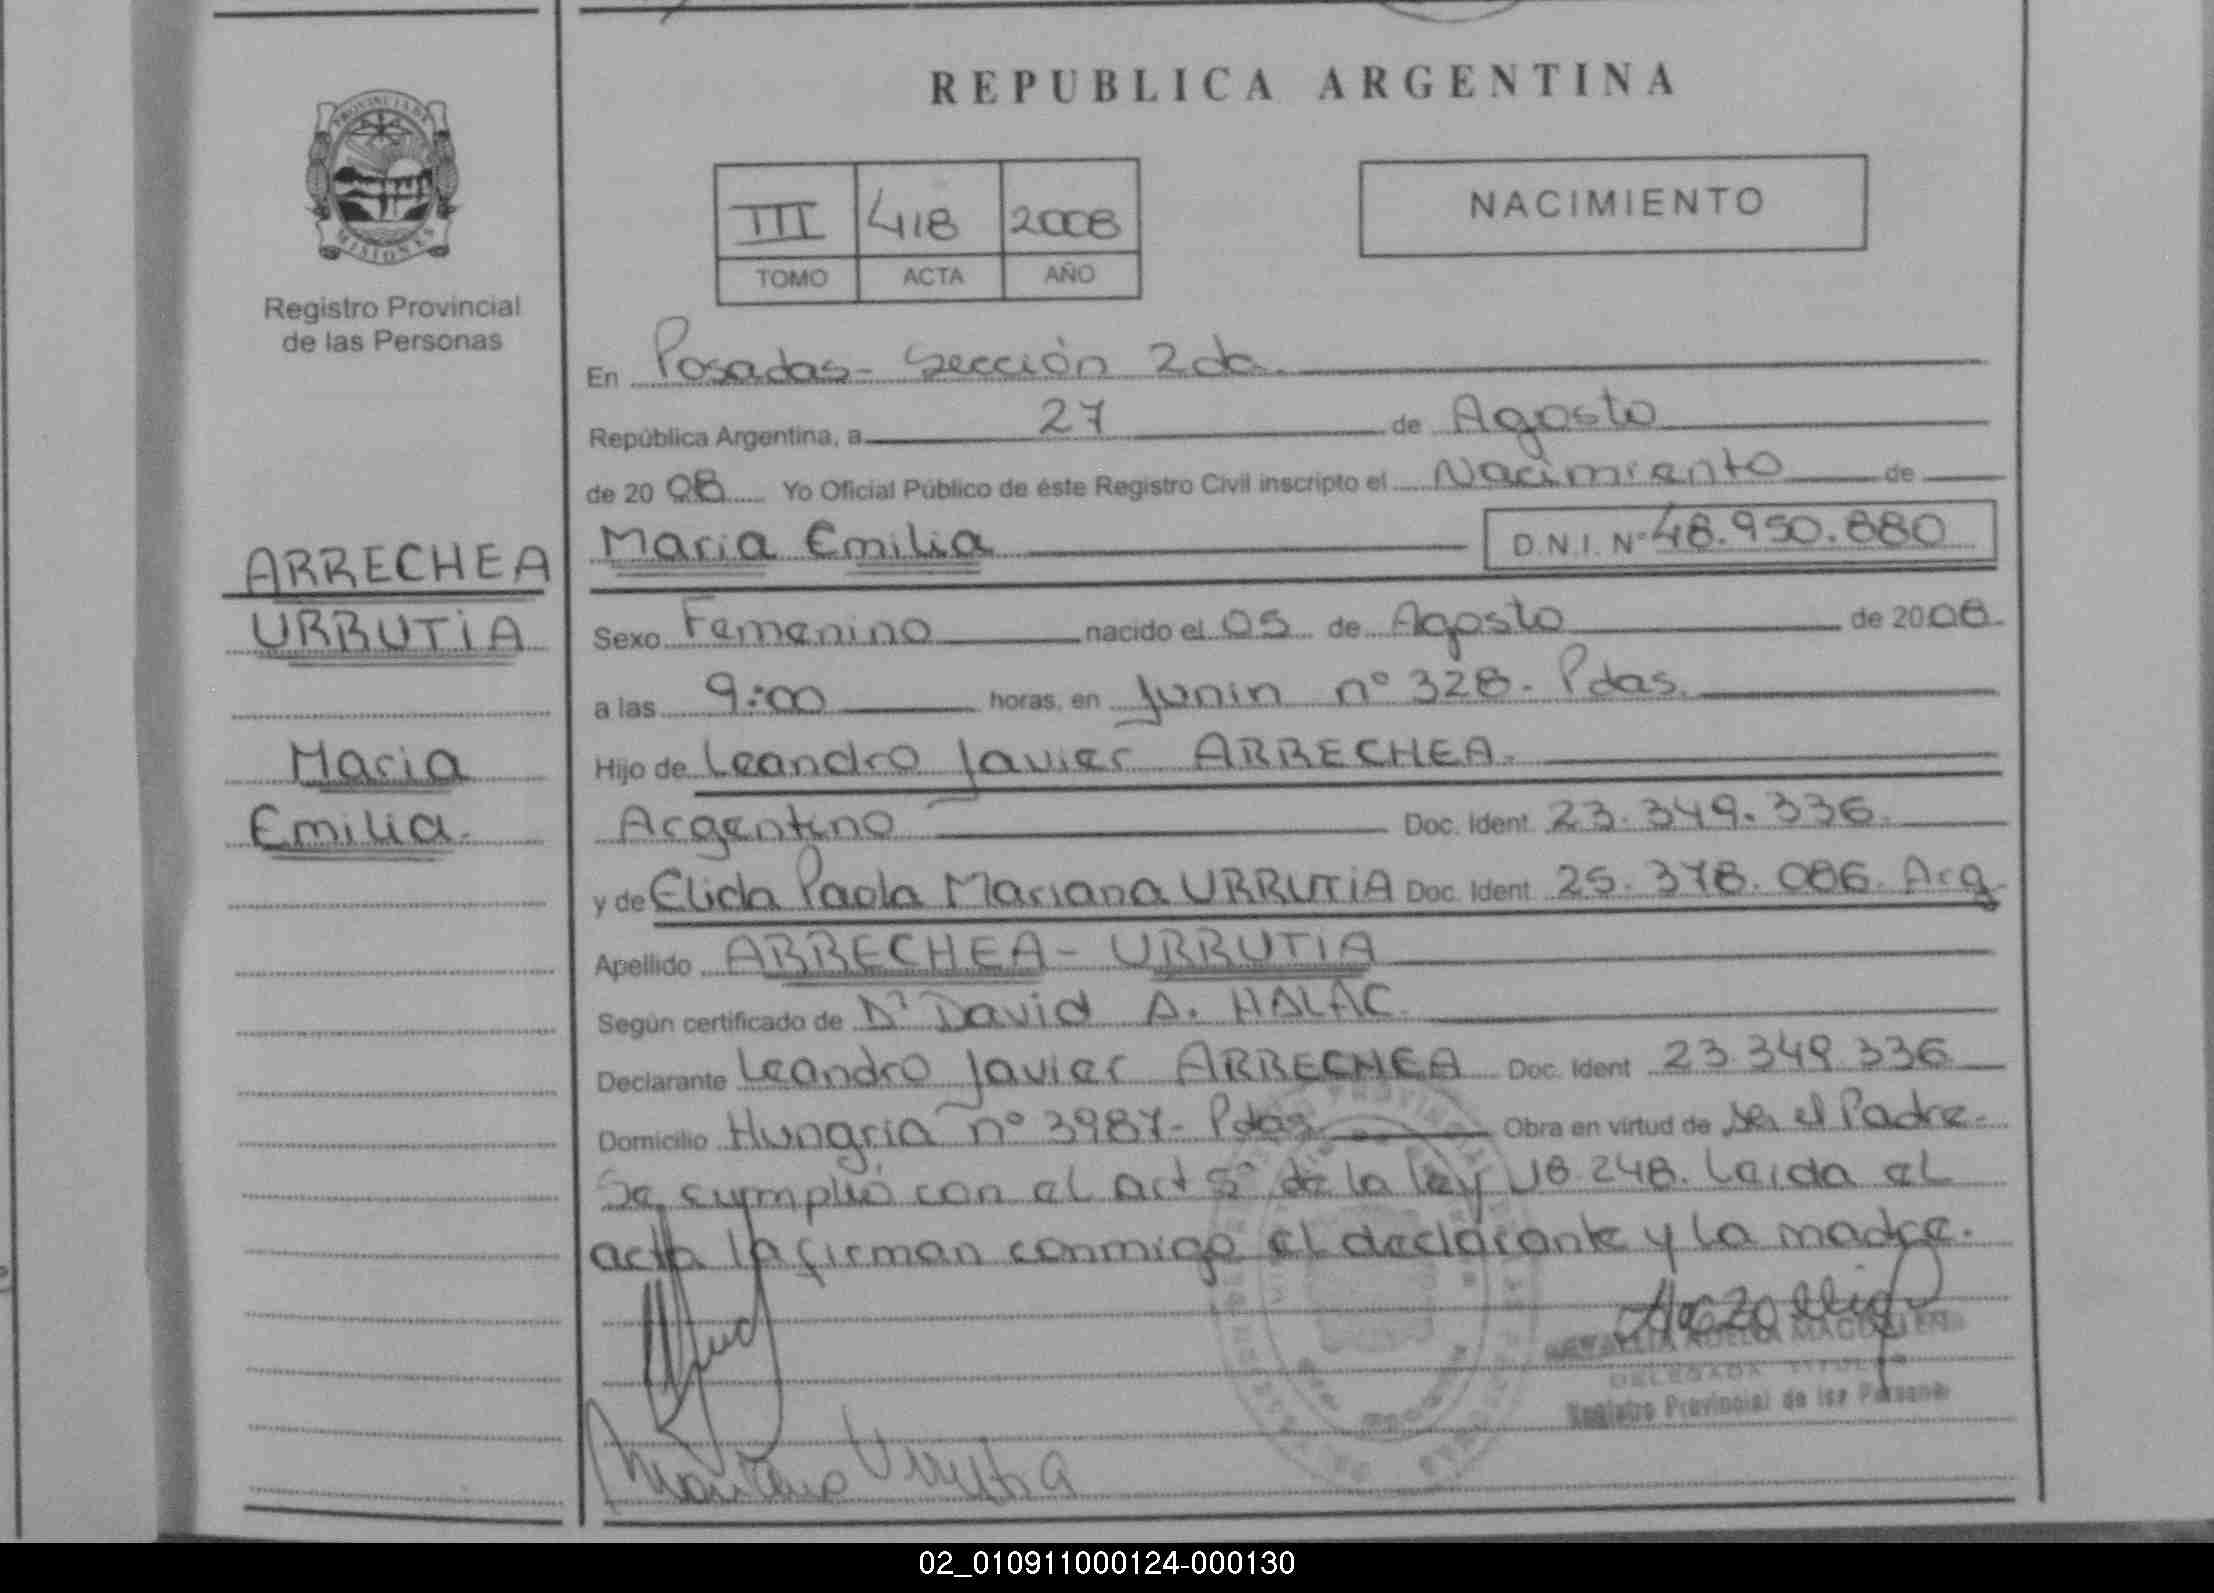 REPUBLICA ARGENTINA
PROVINCIA DE
MISIONES
Registro Provincial
de las Personas
III 418 2008
TOMO ACTA AÑO
NACIMIENTO
En Posadas - Sección 2da.
República Argentina, a 27 de Agosto
de 2008 Yo Oficial Público de éste Registro Civil inscripto el Nacimiento de
Maria Emilia D.N.I. Nº 48.950.880
ARRECHEA
URRUTIA
Maria
Emilia.
Sexo Femenino nacido el 05 de Agosto de 2008.
a las 9:00 horas, en Junin nº 328. Pdas.
Hijo de Leandro Javier ARRECHEA.
Argentino Doc. Ident 23.349.336.
y de Elida Paola Mariana URRUTIA Doc. Ident 25.378.086. Arg.
Apellido ARRECHEA - URRUTIA
Según certificado de Dr David A. HALAC.
Declarante Leandro Javier ARRECHEA Doc. Ident 23.349.336
Domicilio Hungria nº 3987 - Pdas Obra en virtud de ser el Padre.
Se cumplió con el art 5º de la ley 18.248. Leida el
acta la firman conmigo el declarante y la madre.
DELEGADA TITULAR
Registro Provincial de las Personas
Mariana Urrutia
02_010911000124-000130